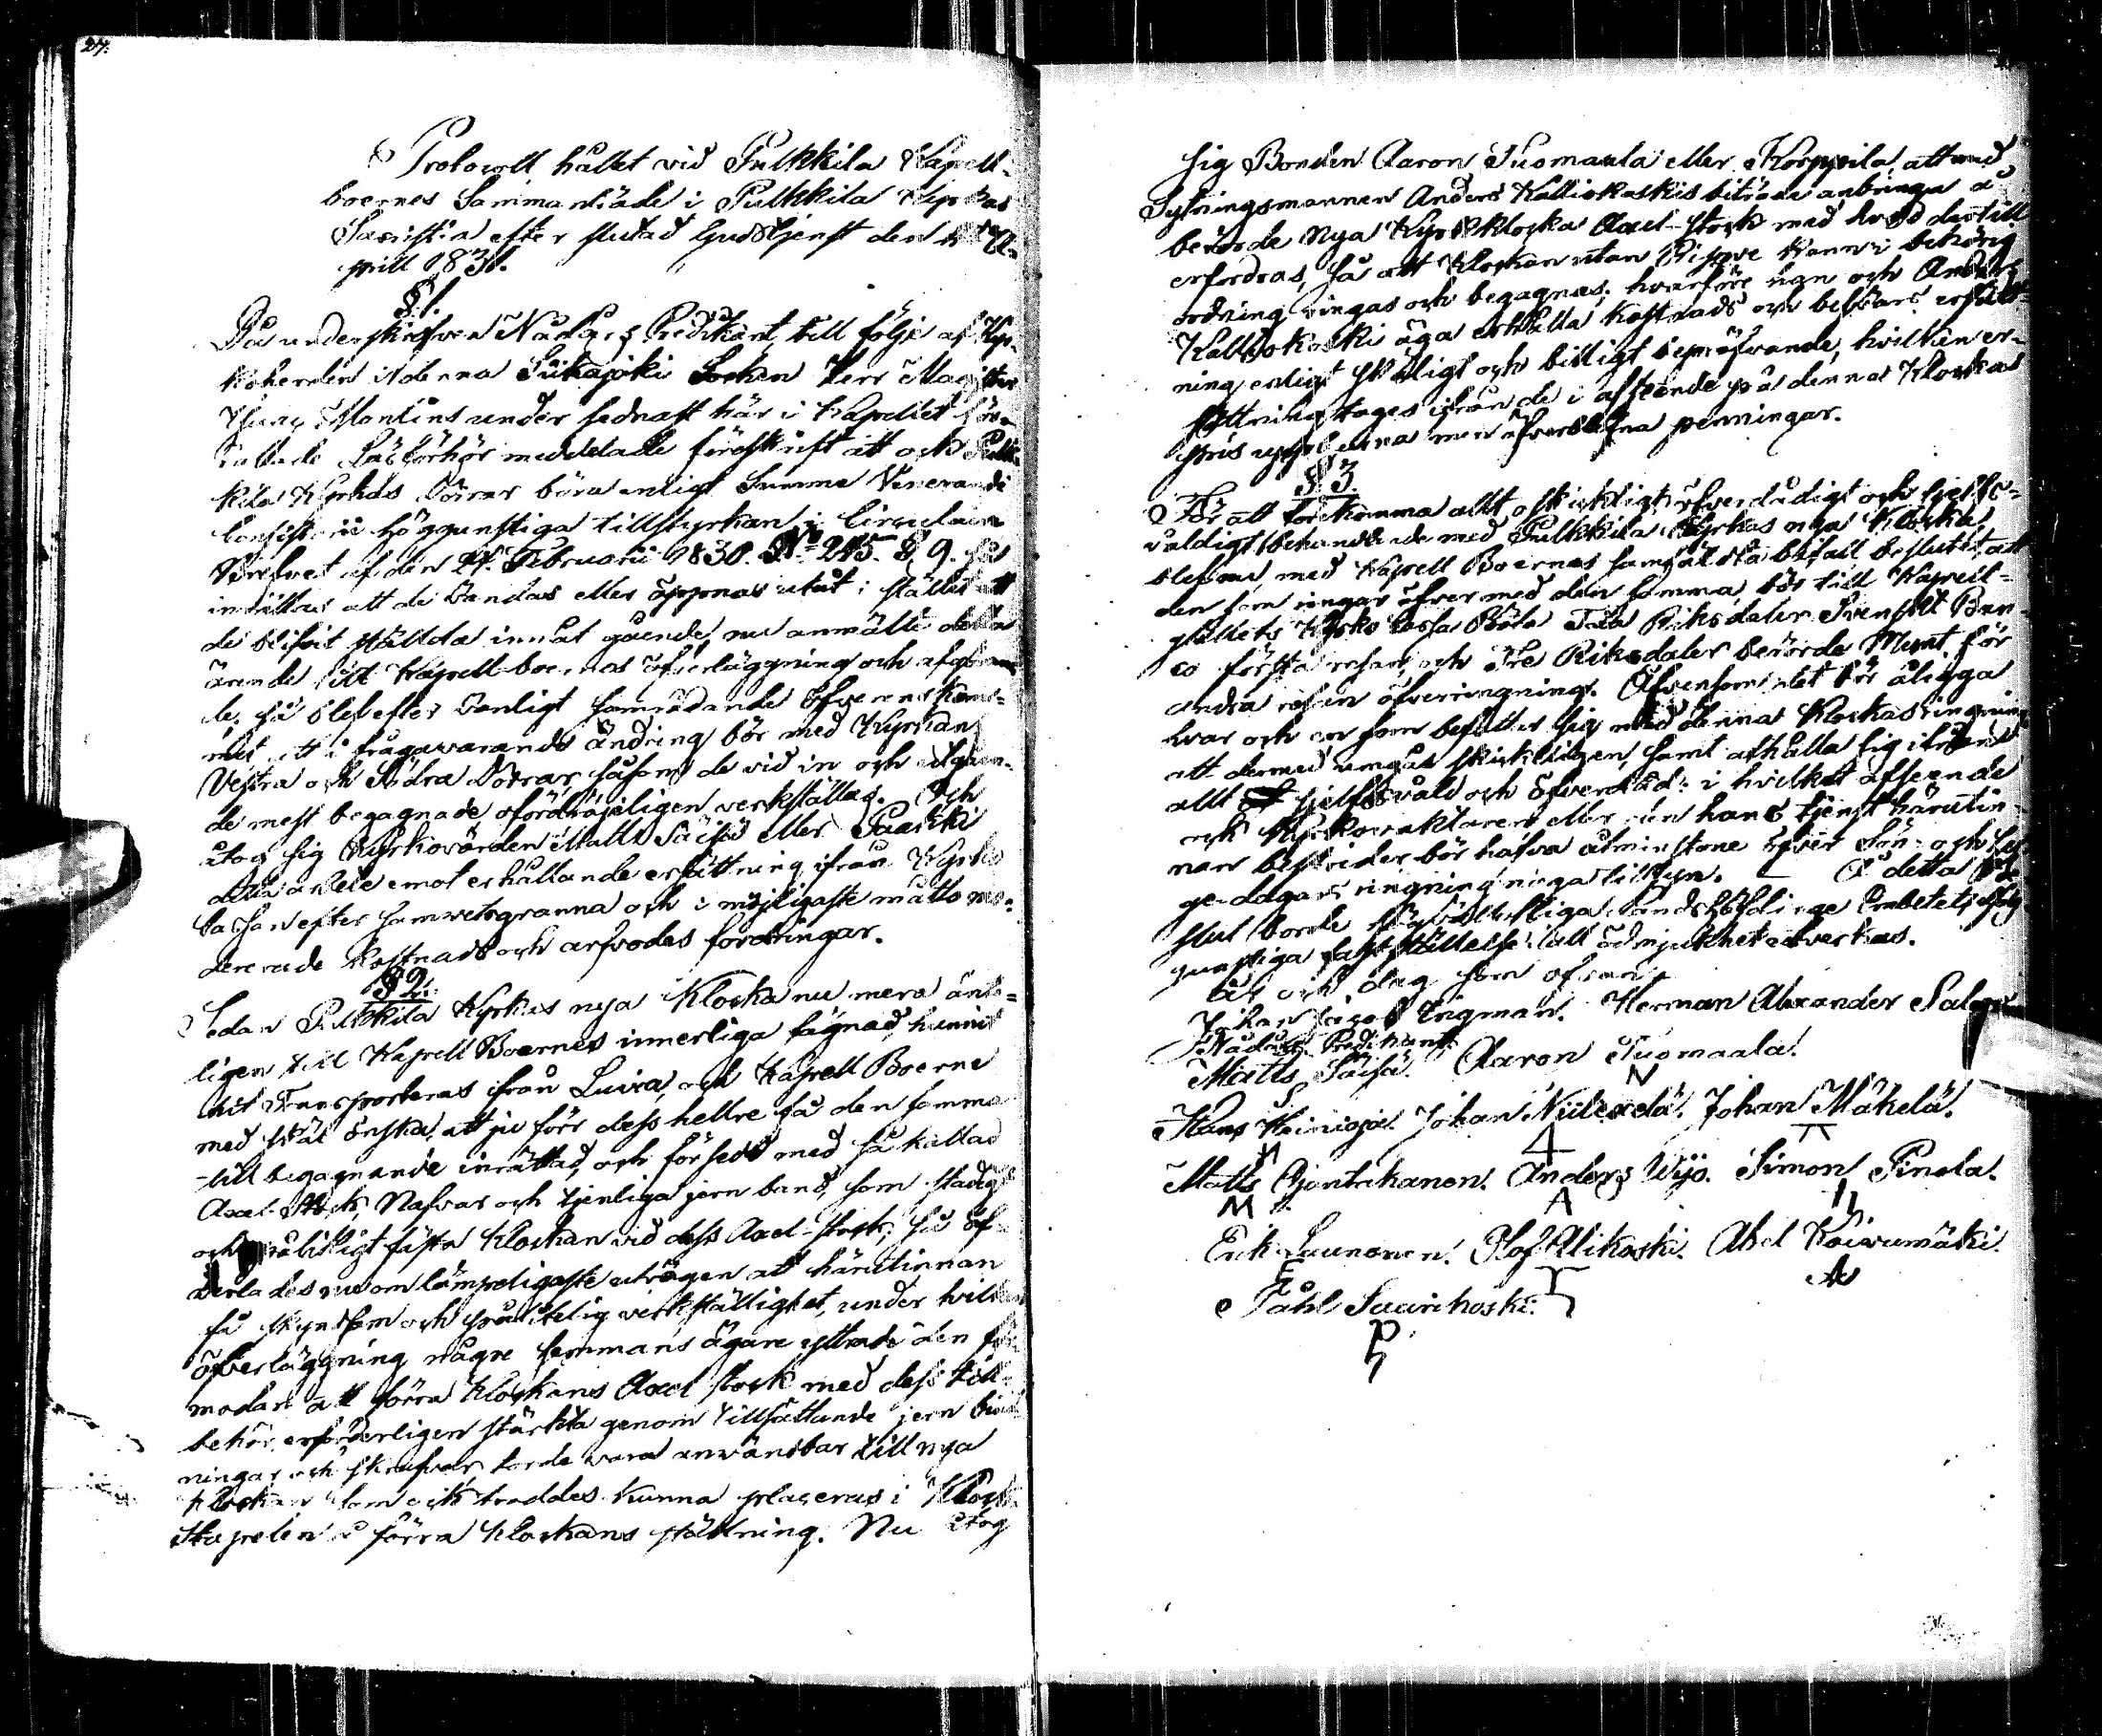 27.
Protocoll hållet vid Pulkkila Kapell-
boernes Sammanträde i Pulkkila Kyrkas
Sacristia efter slutad Gudstjenst den A-
prill 1831.
§ 1.
Då underskrefven Nådårs Predikant, till följe af Kyr-
koherden i denna Siikajoki Socken Herr Magister
Montins under sednast här i Kapellet för-
rättade Läseförhör meddelade föreskrift att och Pulk-
kila Kyrkas Dörrar böra enligt Summe Venerandi
Consistorii höggunstiga tillstyrkan i Circulaire
Brefvet af den 24 Februarii 1830. No 245. § 9. så
inrättas att de vändas eller öppnas utåt i stället att
de blifvit ställda innåt gående, nu anmälte detta
ärende till Kapell-boernas öfverläggning och afgöran-
de; så blef efter vanligt samrådande öfverenskom-
mit, att i frågavarande ändring bör med Kyrkans
Vestra och Södra Dörrar, såsom de vid in och utgåen-
de mest begagnade ofördröjeligen verkställas. Och
åtog sig Kyrkovärden Matts Säisä eller Paaskki
detta arbete emot erhållande ersättning ifrån Kyrko
Cassan efter samvetsgranna och i möjligaste måtto mo-
dererade kostnads och arfvodes fordringar.
§ 2.
Sedan Pulkkila Kyrkas nya Klocka nu mera änte-
ligen till Kapell Boernes innerliga fägnad, hunnit
hit Transporteras ifrån Luira, och Kapell Boerne
med skäl önska, att ju förr dess hellre få den samma
till begagnande inrättad, och försedd med så kallad
Axel-Stock, Nafvar och tjenliga jern band, som stadigt
och pålitligt fästa Klockan vid dess Axel-stock; så öf-
verlades nu om lämpeligaste utvägen att härutinnan
få skyndsam och pålitelig verkställighet, under hvilken
öfverläggning någre hemmans ägare yttrade den för-
modan att förra Klockans Axel stock med dess till-
behör, erforderligen stärkta genom tillsättande jern bind-
ningar och skrufvar torde vara användbar till nya
Klockan som ock troddes kunna placeras i Klock-
stapelen i förra Klockans ställning. Nu åtog
sig Bonden Aaron Tuomaala eller Korppila, att med
Sytningsmannen Anders Kalliokoskis biträde anbringa å
berörde nya Kyrkklocka Axel-stock med hvad dertill
erfordras, så att Klockan utan Risque kann i behörig
ordning ringas och begagnas; hvarföre han och Anders
Kalliokoski äga erhålla kostnads och besvärs ersätt-
ning enligt skäligt och billigt bepröfvande, hvilken er-
sättning tages ifrån de i afseende på denna Klockas
pris uppburna men öfverblefna penningar.
§ 3.
För att förekomma allt oskickligt, öfverdådigt och sjelfs-
våldigt behandlande med Pulkkila Kyrkas nya Klocka,
blef nu, med Kapell Boernas samfälta bifall beslutet, att
den som ringar öfver med den samma, bör till Kapell-
gillets Kyrko Cassa Böta Två Riksdaler Svenskt Ban-
co första resan, och Tre Riksdaler berörde Mynt för
andra resan öfverringning. Äfvensom det bör åligga
hvar och en som befattar sig med denna Klockas ringning
att dermed umgås skickeligen, samt afhålla sig ifrån
allt sjelfsvåld och öfverdåd: i hvilket afseende
och Kyrkovaktaren eller den hans tjenst härutin-
nan bestrider, bör hafva åtminstone öfver Sön- och Hel-
ge-dagars ringning noga tillsyn. — Å detta be-
slut borde Högvälborliga Landshöfdinge Embetets hög-
gunstiga fastställelse i all ödmjukhet utverkas.
År och dag som ofvan.
Johan Jacob Engman. Herman Alexander
Nådårs Predikant.
Matts Säisä. Aaron Tuomaala.
N
Hans Heinioja. Johan Niilexelä. Johan Mäkelä.
H
Matts Pjentikanen. Anders Wijo. Simon Pinola.
M A
Erik Launonen. Olof Alikoski. Abel Koivumäki.
E A
Påhl Saarikoski.
P